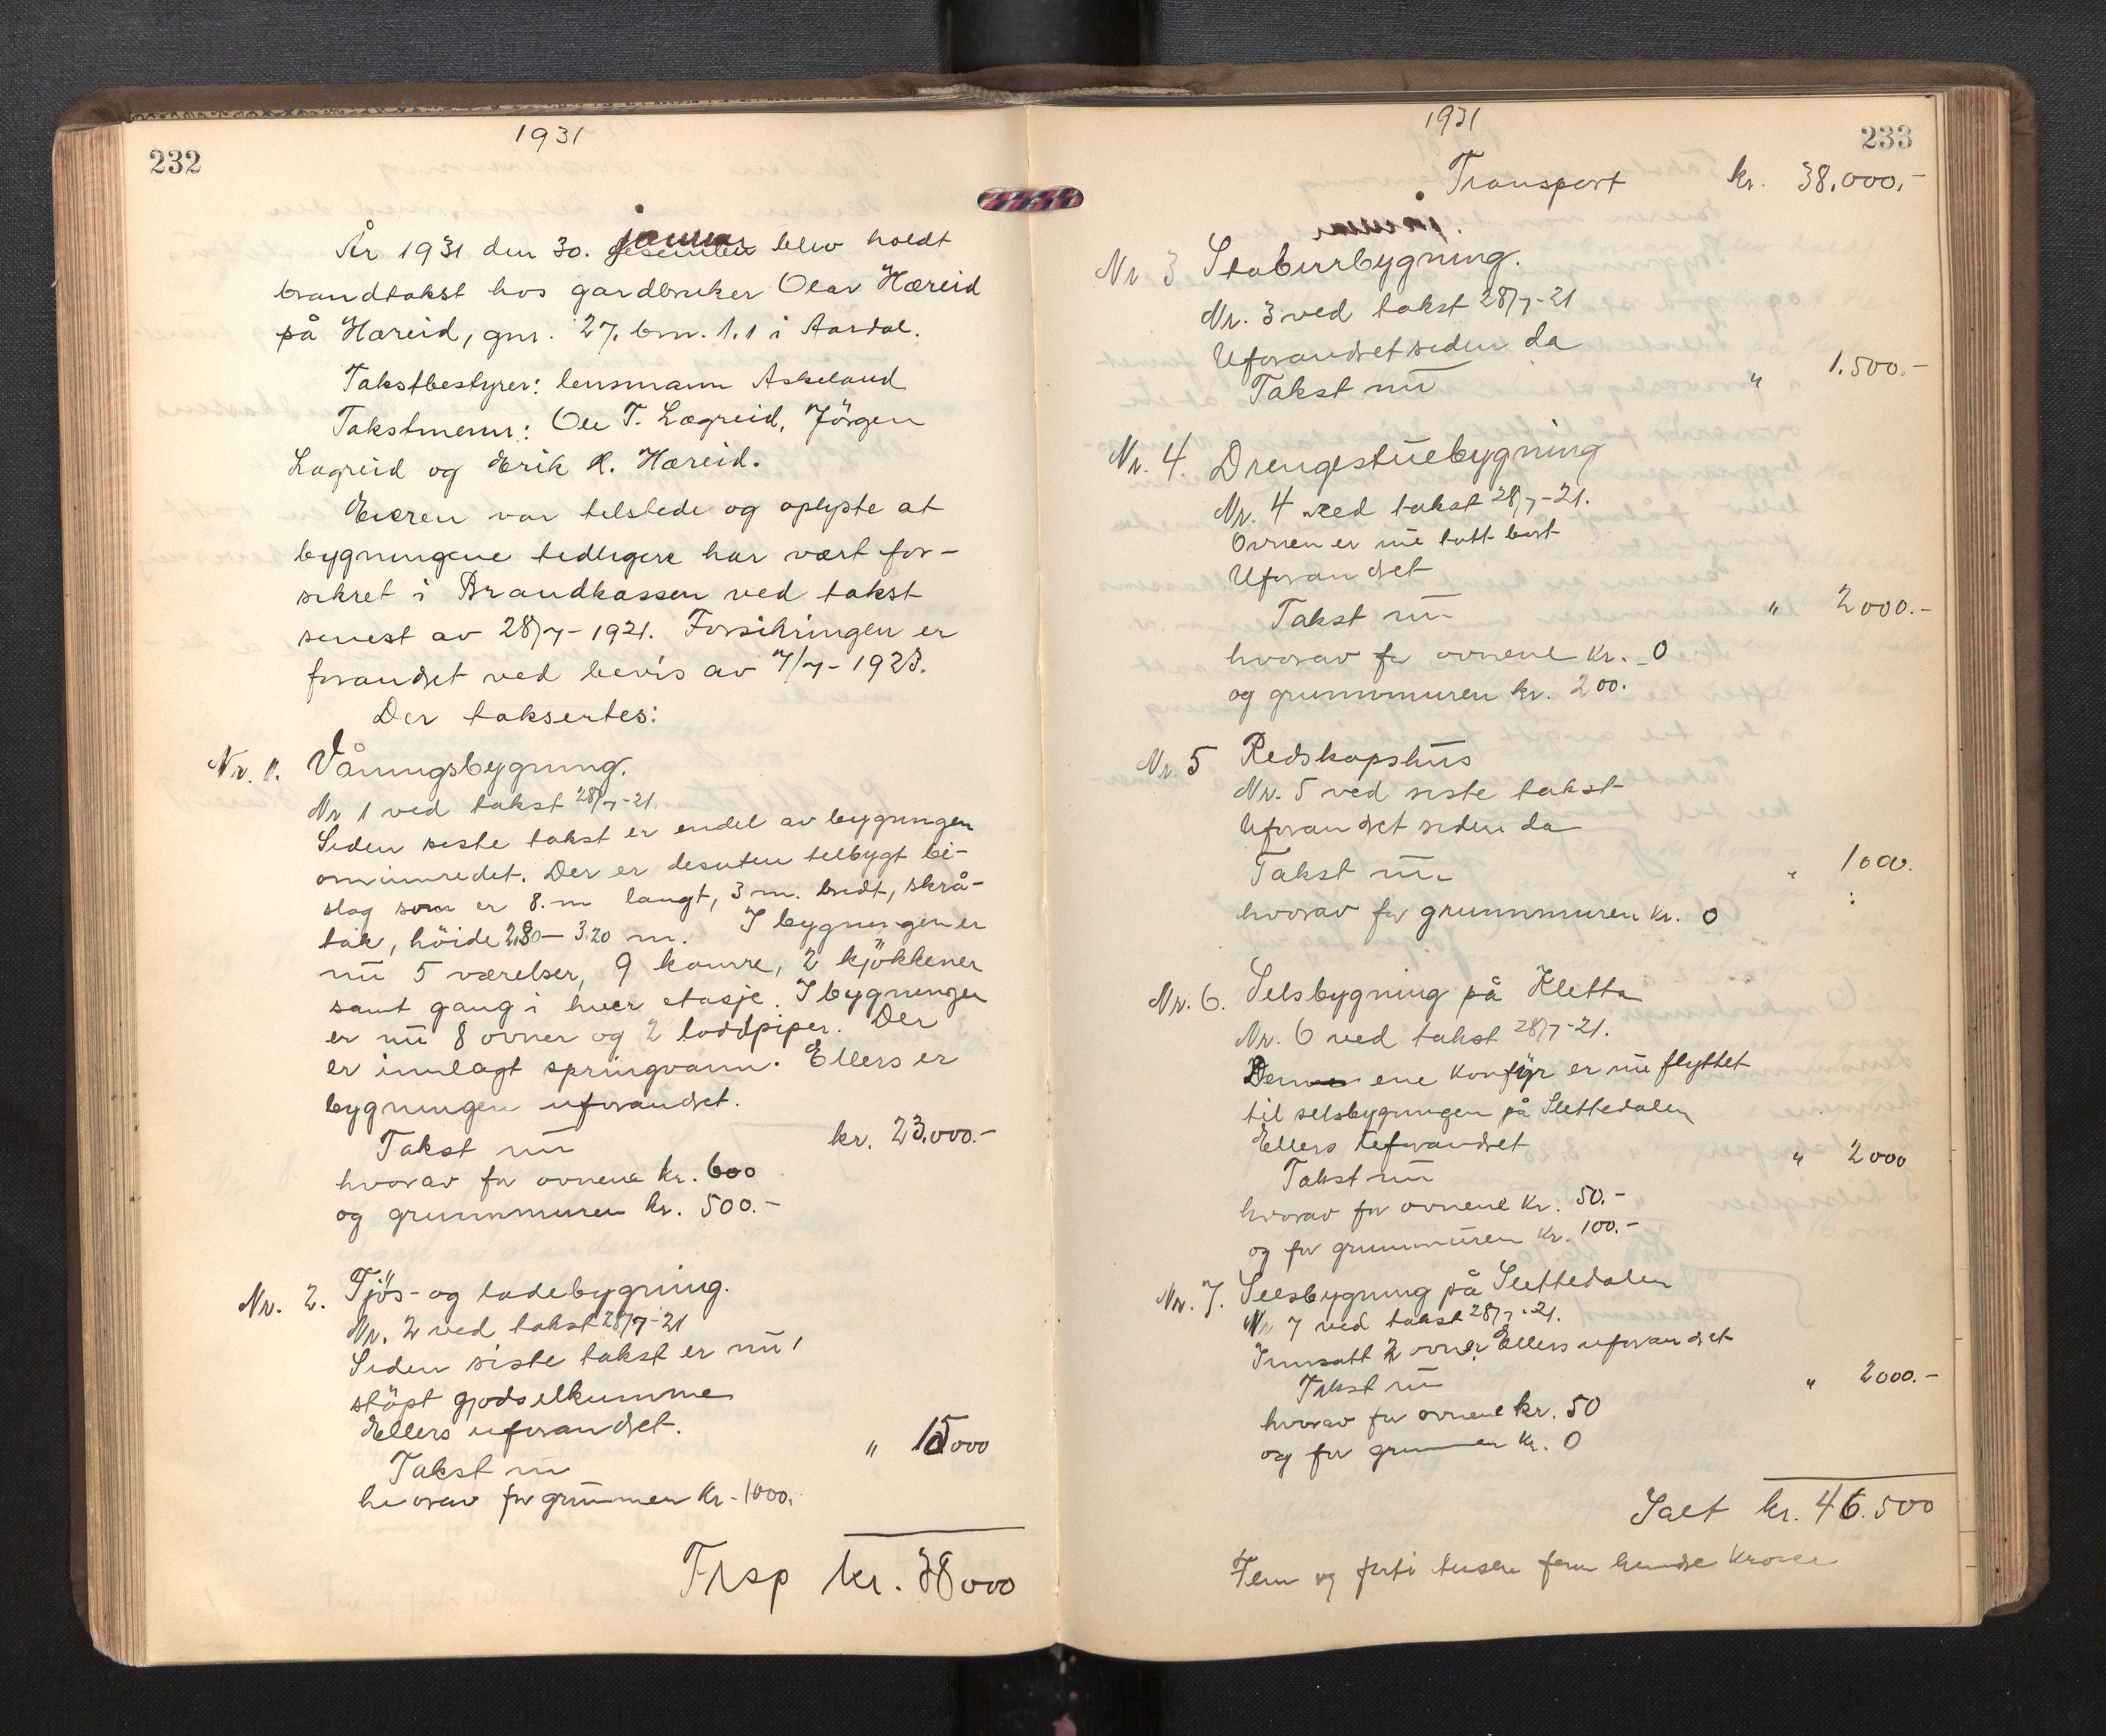 1931
232
År 1931 den 30. januar desember blev holdt
brandtakst hos gardbruker Olav Hæreid
på Hæreid, gnr. 27, bnr. 1.1 i Aardal.
Takstbestyrer: lensmann Askeland
Takstmenn: Ole T. Lægreid, Jörgen
Lægreid og Erik K. Hæreid.
Eieren var tilstede og oplyste at
bygningene tidligere har vært for-
sikret i Brandkassen ved takst
senest av 28/7-1921. Forsikringen er
forandret ved bevis av 7/7-1923.
Der taksertes:
Nr. 1. Våningsbygning.
Nr 1 ved takst 28/7-21.
Siden siste takst er endel av bygningen
ominnredet. Der er desuten tilbygt bi-
slag som er 8. m langt, 3 m. bredt, skrå-
tak, höide 2,80-3.20 m. I bygningen er
nu 5 værelser, 9 kamre, 2 kjökkener
samt gang i hver etasje. I bygningen
er nu 8 ovner og 2 loddpiper. Der
er innlagt springvann. Ellers er
bygningen uforandret.
Takst nu kr. 23.000.-
hvorav for ovnene kr. 600
og grunnmuren kr. 500.-
Nr. 2. Fjös- og ladebygning.
Nr. 2 ved takst 28/7-21
Siden siste takst er nu
stöpt gjødselkumme
Ellers uforandret.
Takst nu " 15000
hvorav for grunnmuren kr. 1000.
Trsp kr. 38000
1931
233
Transport kr. 38.000,-
Nr 3 Stabursbygning.
Nr. 3 ved takst 28/7-21
Uforandret siden da
Takst nu " 1.500.-
Nr. 4. Drengestuebygning
Nr. 4 ved takst 28/7-21.
Ovnen er nu tatt bort
Uforandret
Takst nu " 2000.-
hvorav for ovnene kr. 0
og grunnmuren kr. 200.
Nr. 5 Redskapshus
Nr. 5 ved siste takst
Uforandret siden da
Takst nu " 1000.
hvorav for grunnmuren kr. 0
Nr. 6. Selsbygning på Kletta
Nr. 6 ved takst 28/7-21.
Den ene komfyr er nu flyttet
til selsbygningen på Slettedalen
Ellers uforandret
Takst nu " 2000
hvorav for ovnene kr. 50.-
og for grunnmuren kr. 100.-
Nr. 7. Selsbygning på Slettedalen
Nr 7 ved takst 28/7-21.
Innsatt 2 ovner. Ellers uforandret
Takst nu " 2000.-
hvorav for ovnene kr. 50
og for grunnmuren kr. 0
Ialt kr. 46.500
Fem og førti tusen fem hundre kroner